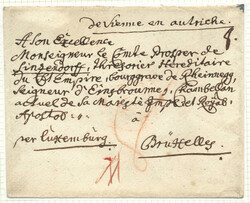 de vienne en autriche.
A Son Excellence
Monseigneur le Comte Prosper de
Sinzendorff, Thresorier Hereditaire
du St Empire, Bourggrave de Rheinnegg,
Seigneur d'Ernsbrounn, Chambellan
actuel de sa Majesté Imp et Royale
Apostol:
à
per Luxembourg
Bruxelles